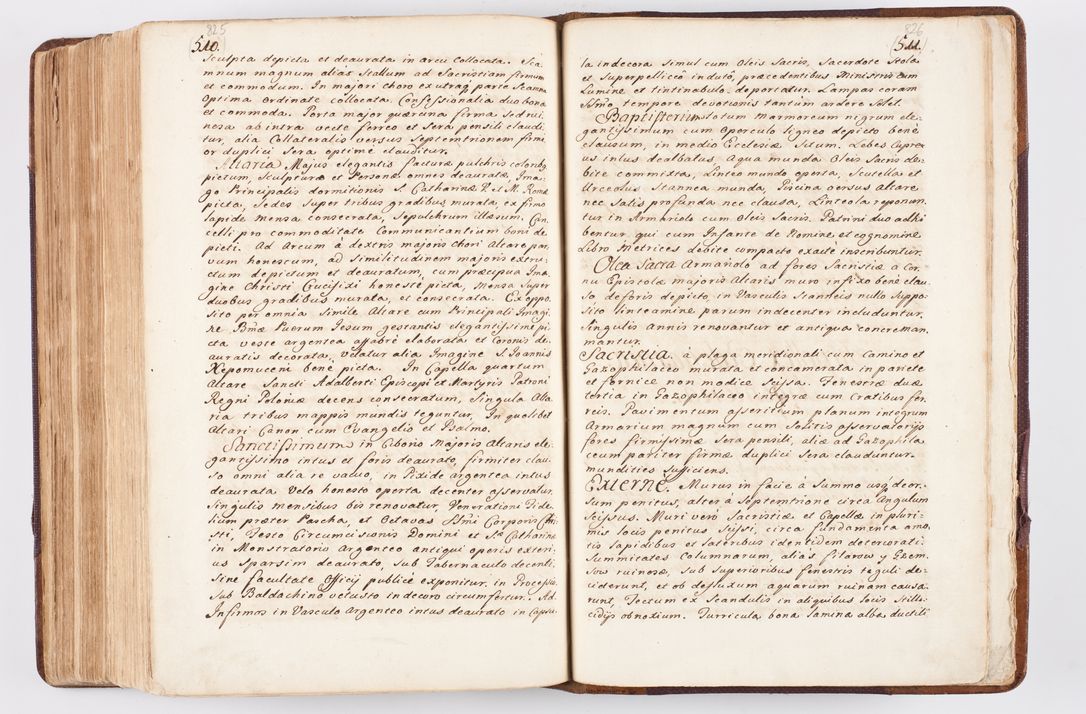 825
510.
Sculpta depicta et deaurata in arcu Collocata. Sca
mnum magnum alias Stallum ad Sacristiam firmum
et commodum. In majori choro ex utraq; parte Scamna
Optima ordinate collocata. Confessionalia duo bona
et commoda. Porta major quercina firma sed rui-
nosa ab intra vecte ferreo et Sera pensili claudi
tur, alia Collateralis versus Septemtrionem firmi
or duplici Sera optime clauditur.
Altaria Majus elegantis facturæ pulchris colonbs
pictum, Sculpturæ et Personæ omnes deauratæ, Ima-
go Principalis dormitionis S. Catharinæ V. et M. Romæ
picta, Sedes super tribus gradibus murata, ex firmo
lapide mensa consecrata, Sepulchrum illæsum. Can
celli pro commoditate Communicantium boni de-
picti. Ad Arcum à dextris majoris Chori Altare par
vum honestum, ad Similitudinem majoris extru-
ctum depictum et deauratum, cum præcipua Ima
gine Christi Crucifixi honeste picta, Mensa Super
duobus gradibus murata, et consecrata. Ex oppo
sito per omnia Simile Altare cum Principali Imagi
ne Bmæ Puerum Jesum gestantis elegantissime pi
cta veste argentea affabre elaborata et Coronis de-
auratis decorata, velatur alia Imagine S. Joannis
Nepomuceni bene picta. In Capella quartum
Altare Sancti Adalberti Episcopi et Martyris Patroni
Regni Poloniæ decens consecratum, Singula Alta
ria tribus mappis mundis teguntur. In quolibet
Altari Canon cum Evangelio et Psalmo.
Sanctissimum in Ciborio Majoris Altaris ele-
gantissimo intus et foris deaurato, firmiter clau
so omni alia re vacuo, in Pixide argentea intus
deaurata Velo honesto operta decenter asservatur
Singulis mensibus bis renovatur, Venerationi Fide
lium præter Pascha, et Octavas Ssmi Corporis Chri
sti, Festo Circumcisionis Domini et Stæ Catharinæ
in Monstratorio Argenteo antiqui operis exteri-
us Sparsim deaurato, sub Tabernaculo decenti
Sine facultate Officij publice exponitur, in Processio.
Sub Baldachino vetusto indecoro circumfertur. Ad
Infirmos in Vasculo argenteo intus deaurato in Capsu-
826
511.
la indecora simul cum Oleis Sacris, Sacerdote Stola
et Superpelliceo induto, præcedentibus Ministris cum
Lumine et tintinabulo deportatur. Lampas coram
Ssmo tempore devotionis tantum ardere Solet.
Baptisterium totum Marmoreum nigrum ele-
gantissimum cum Operculo ligneo depicto bene
clausum, in medio Ecclesiæ Situm. Lebes cupre-
us intus dealbatus, Aqua munda Oleis Sacris de-
bite commixta, Linteo mundo operta, Scutella et
Urceolus Stannea munda, Piscina versus altare
nec Satis profunda nec clausa, Linteola reponun
tur in Armariolo cum Oleis Sacris. Patrini duo adhi
bentur qui cum Infante de Nomine et cognomine
Libro Metrices debite compacto exacte inscribuntur.
Olea Sacra Armariolo ad fores Sacristiæ a Cor
nu Epistolæ majoris Altaris muro infixo bene clau
so, deforis depicto, in Vasculis Stanneis nullo Suppo
sito linteamine parum indecenter includuntur,
Singulis annis renovantur et antiqua concreman
mantur.
Sacristia, à plaga meridionali cum Camino et
Gazophilaceo murata et concamerata in pariete
et fornice non modice Scissa. Fenestræ duæ
tertia in Gazophilaceo integræ cum Cratibus fer
reis. Pavimentum asseritium planum integrum
Armarium magnum cum Solitis asservatorijs
fores firmissimæ Sera pensili, aliæ ad Gazophila
ceum pariter firmæ duplici Sera clauduntur.
mundities sufficiens.
Externe. Murus in facie à Summo usq; deor-
sum penitus, alter à Septemtrione circa Angulum
Scissus. Muri vero Sacristiæ et Capellæ in pluri-
mis locis penitus scissi, circa fundamenta amo
tis lapidibus et lateribus identidem deteriorati.
Summitates Columnarum, alias Filarow y Gzem
sow ruinosæ, sub superioribus fenestris teguli de-
ciderunt, et ob defluxum aquarum ruinam causa-
runt, Tectum ex Scandulis in aliquibus locis Stilli-
cidijs obnoxium. Turricula bona lamina alba ductili